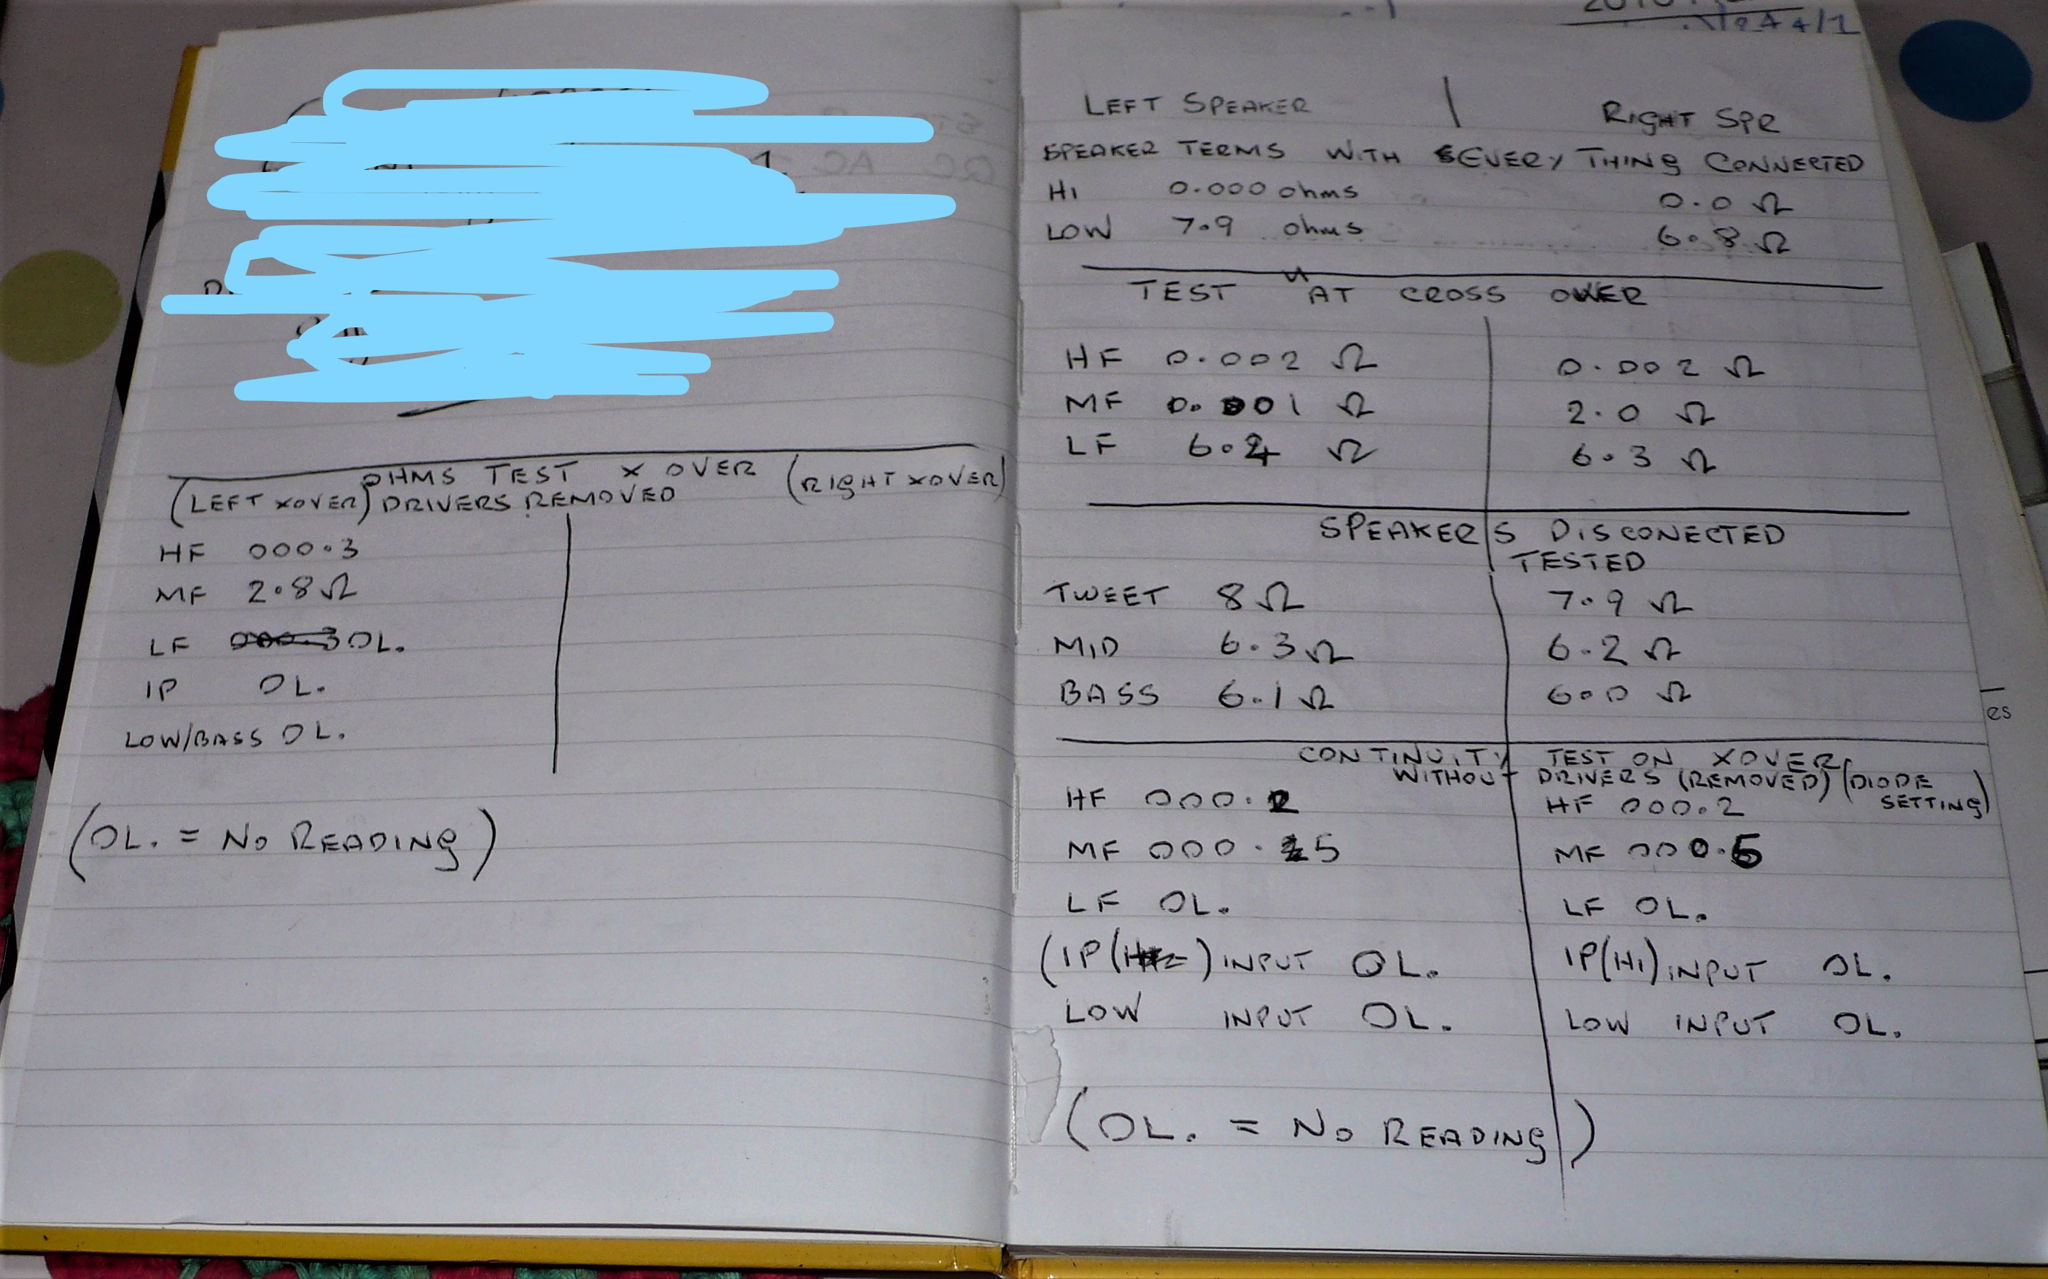 OHMS TEST X OVER
(LEFT XOVER) DRIVERS REMOVED (RIGHT XOVER)
HF 000.3
MF 2.8Ω
LF OL.
IP OL.
LOW/BASS OL.
(OL. = NO READING)
LEFT SPEAKER | RIGHT SPR
SPEAKER TERMS WITH EVERY THING CONNECTED
HI 0.000 ohms 0.0 Ω
LOW 7.9 ohms 6.8 Ω
TEST AT CROSS OVER
HF 0.002 Ω 0.002 Ω
MF 0.001 Ω 2.0 Ω
LF 6.4 Ω 6.3 Ω
SPEAKERS DISCONECTED
TESTED
TWEET 8Ω 7.9 Ω
MID 6.3Ω 6.2 Ω
BASS 6.1Ω 6.0 Ω
CONTINUITY TEST ON XOVER
WITHOUT DRIVERS (REMOVED) (DIODE
SETTING)
HF 000.2 HF 000.2
MF 000.5 MF 000.5
LF OL. LF OL.
(IP( ) INPUT OL. IP(HI) INPUT OL.
LOW INPUT OL. LOW INPUT OL.
(OL. = NO READING)
es